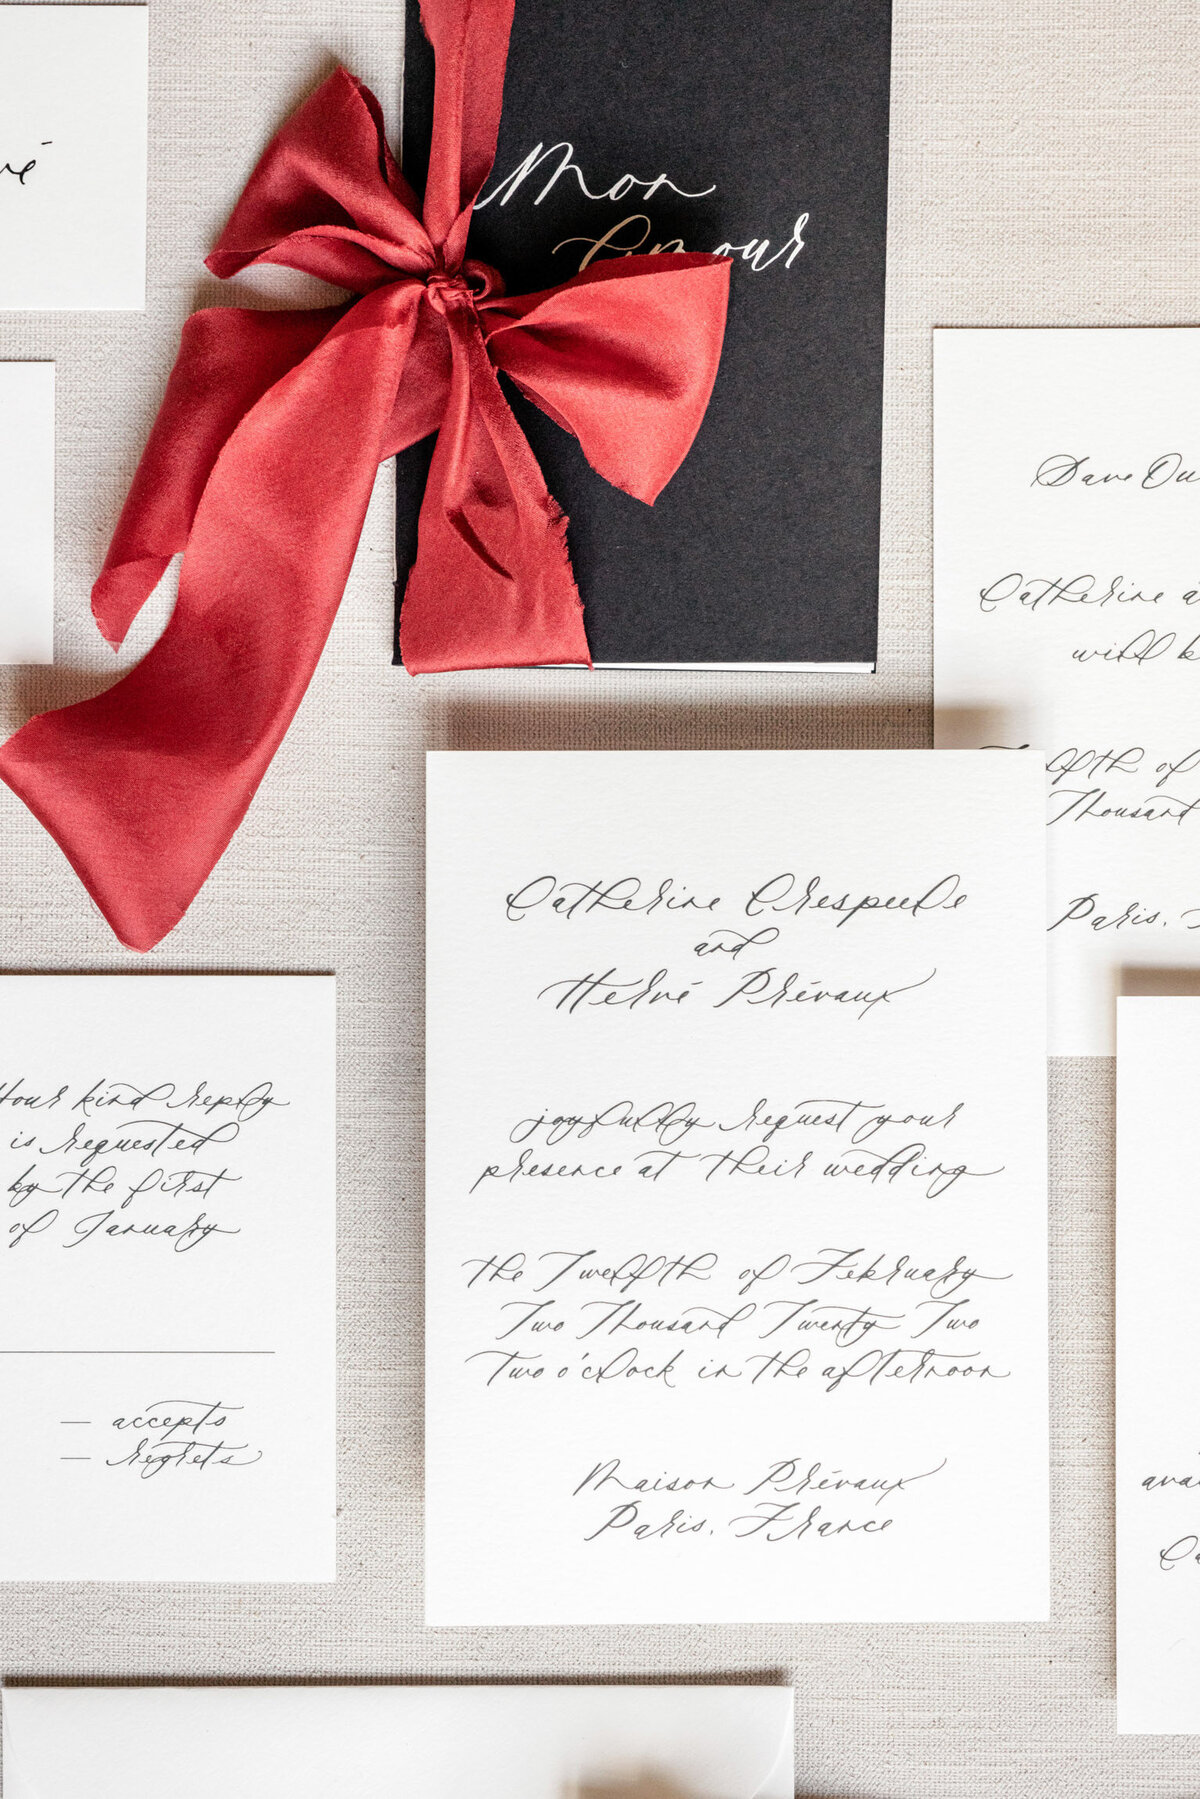 vé
Mon
Amour
Save Ou
Catherine a
will k
Twelfth of
Thousand
Paris, F
Catherine Crespeele
and
Hervé Prévaux
joyfully request your
presence at their wedding
the Twelfth of February
Two Thousand Twenty Two
Two o'clock in the afternoon
Maison Prévaux
Paris, France
Your kind reply
is requested
by the first
of January
— accepts
— regrets
avai
Ca